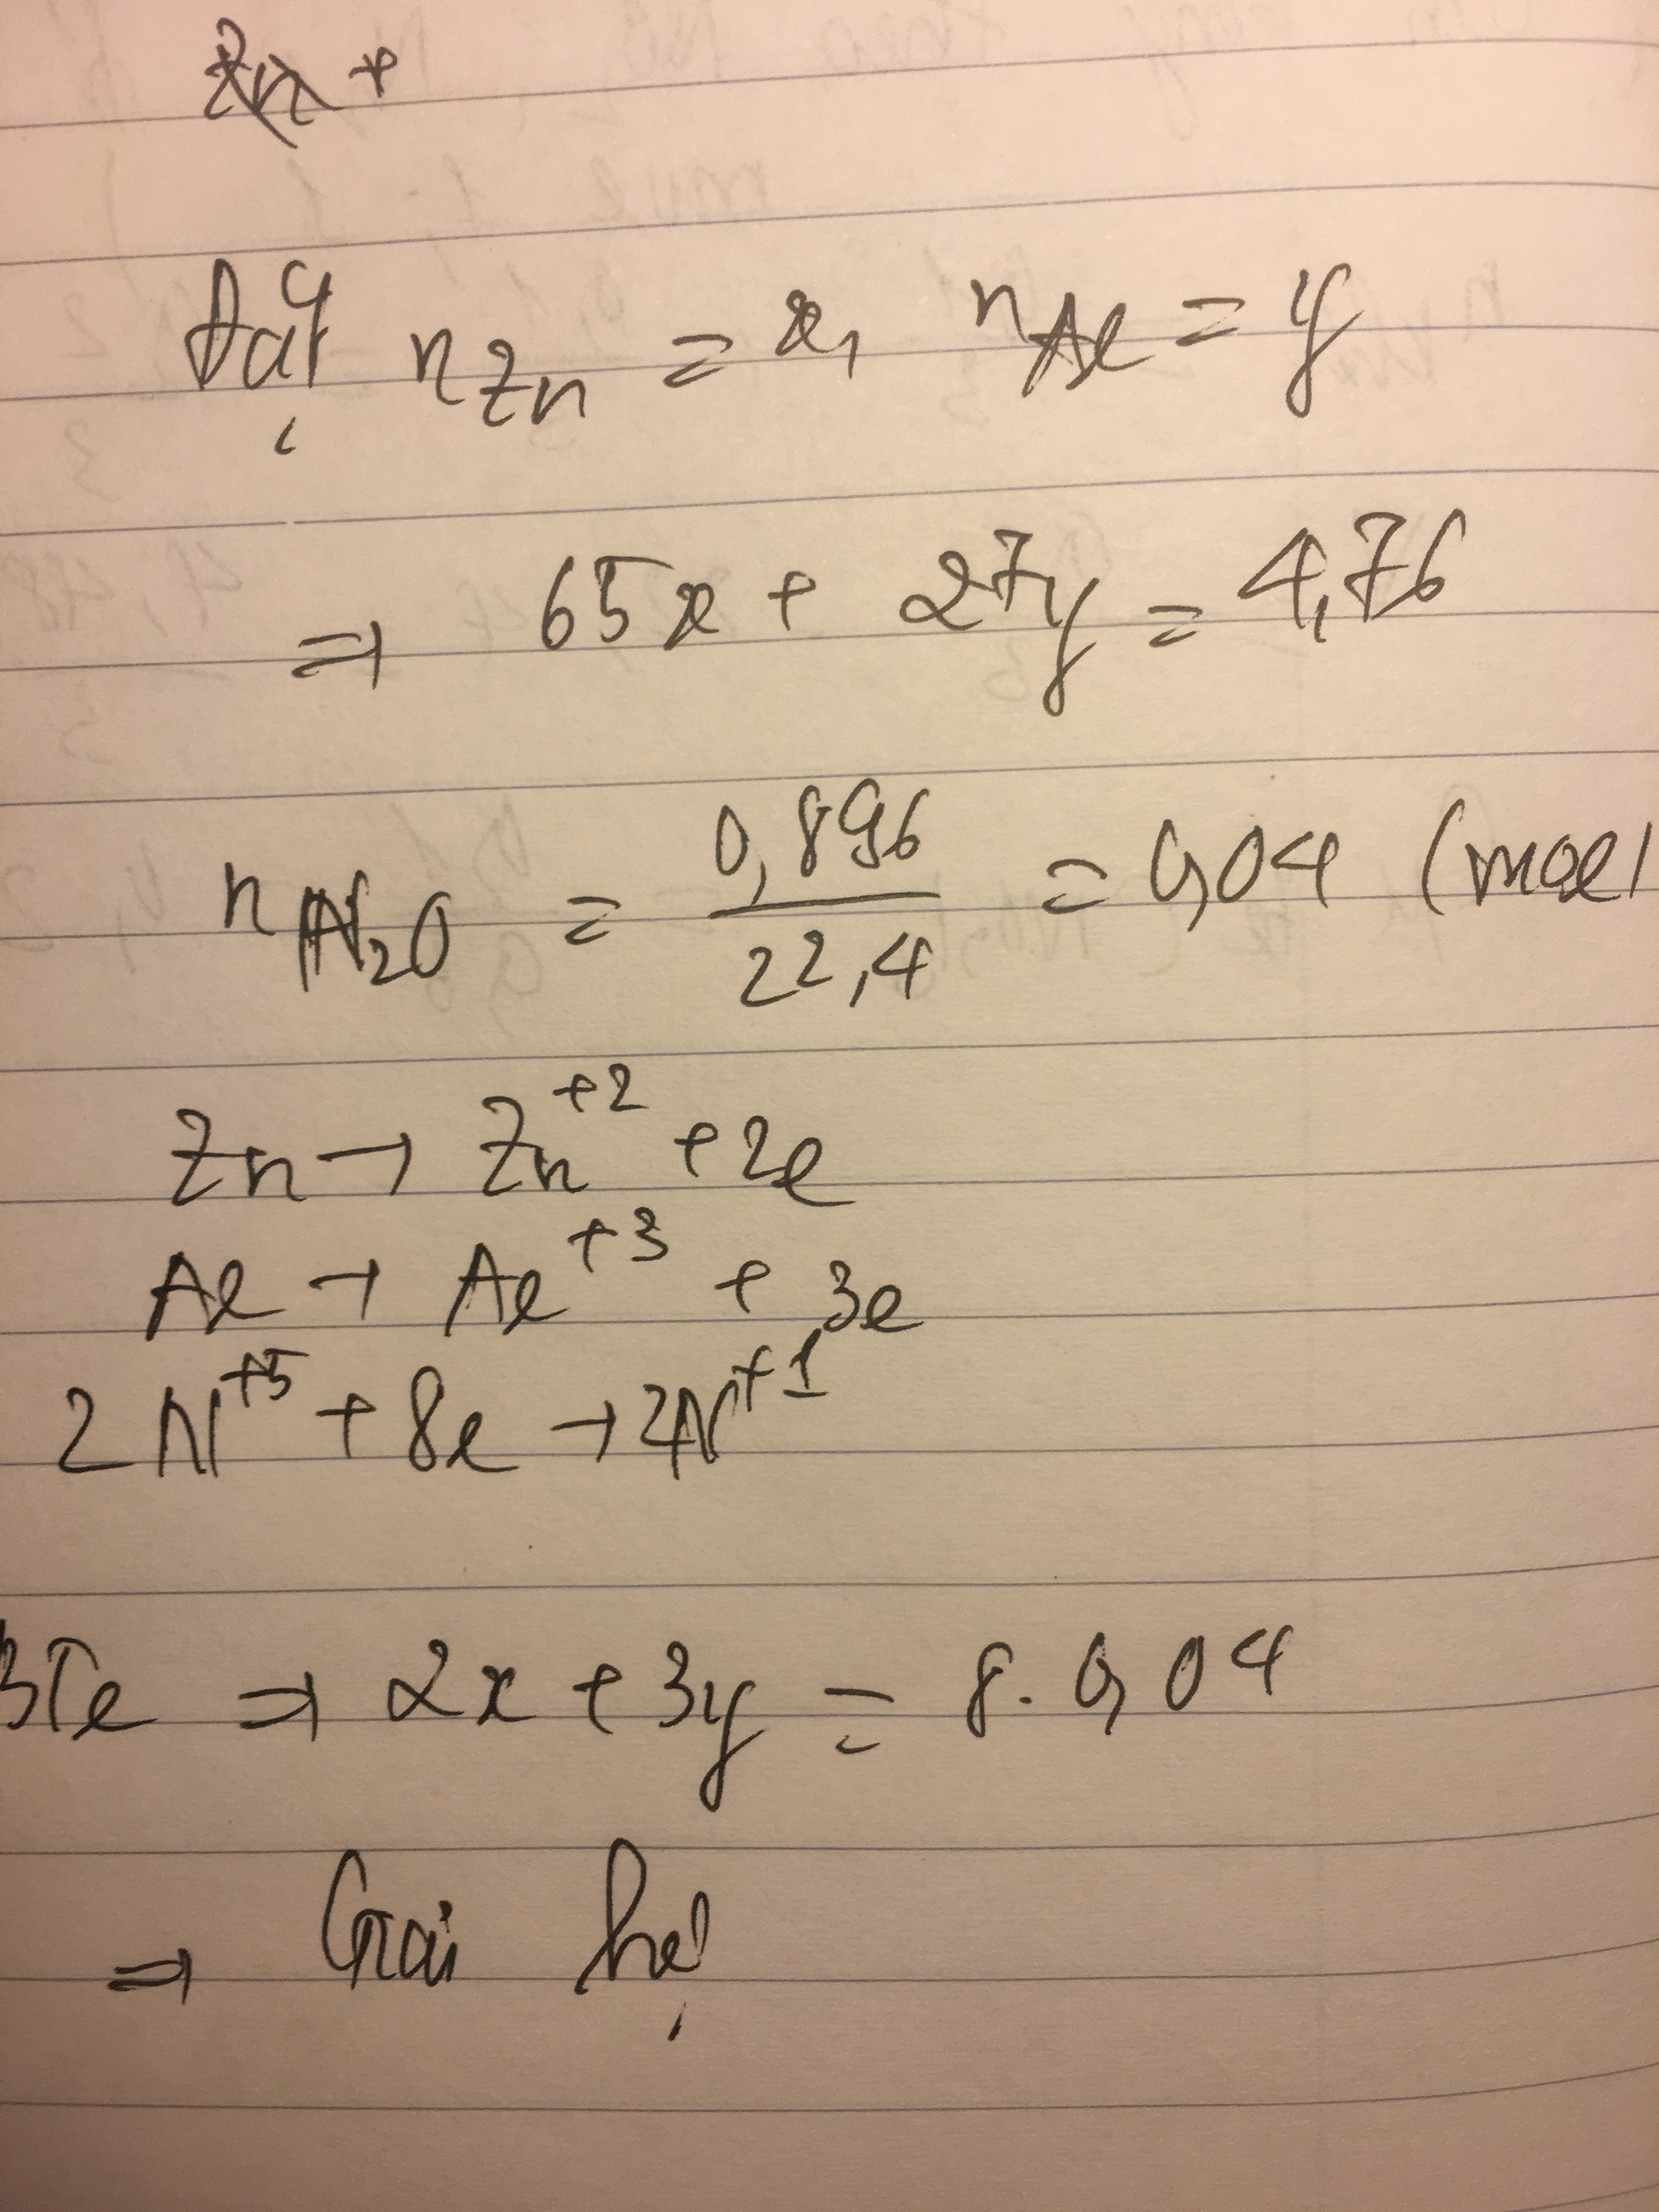 Đặt nZn = x, nAl = y
=> 65x + 27y = 4,76
nN2O = 0,896 / 22,4 = 0,04 (mol
Zn → Zn+2 + 2e
Al → Al+3 + 3e
2N+5 + 8e → 2N+1
BTe => 2x + 3y = 8. 0,04
=> Giải hệ